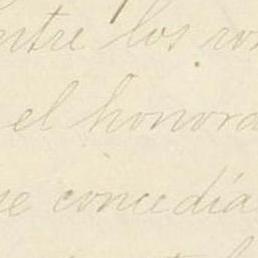 entre los
el honor
se concedía